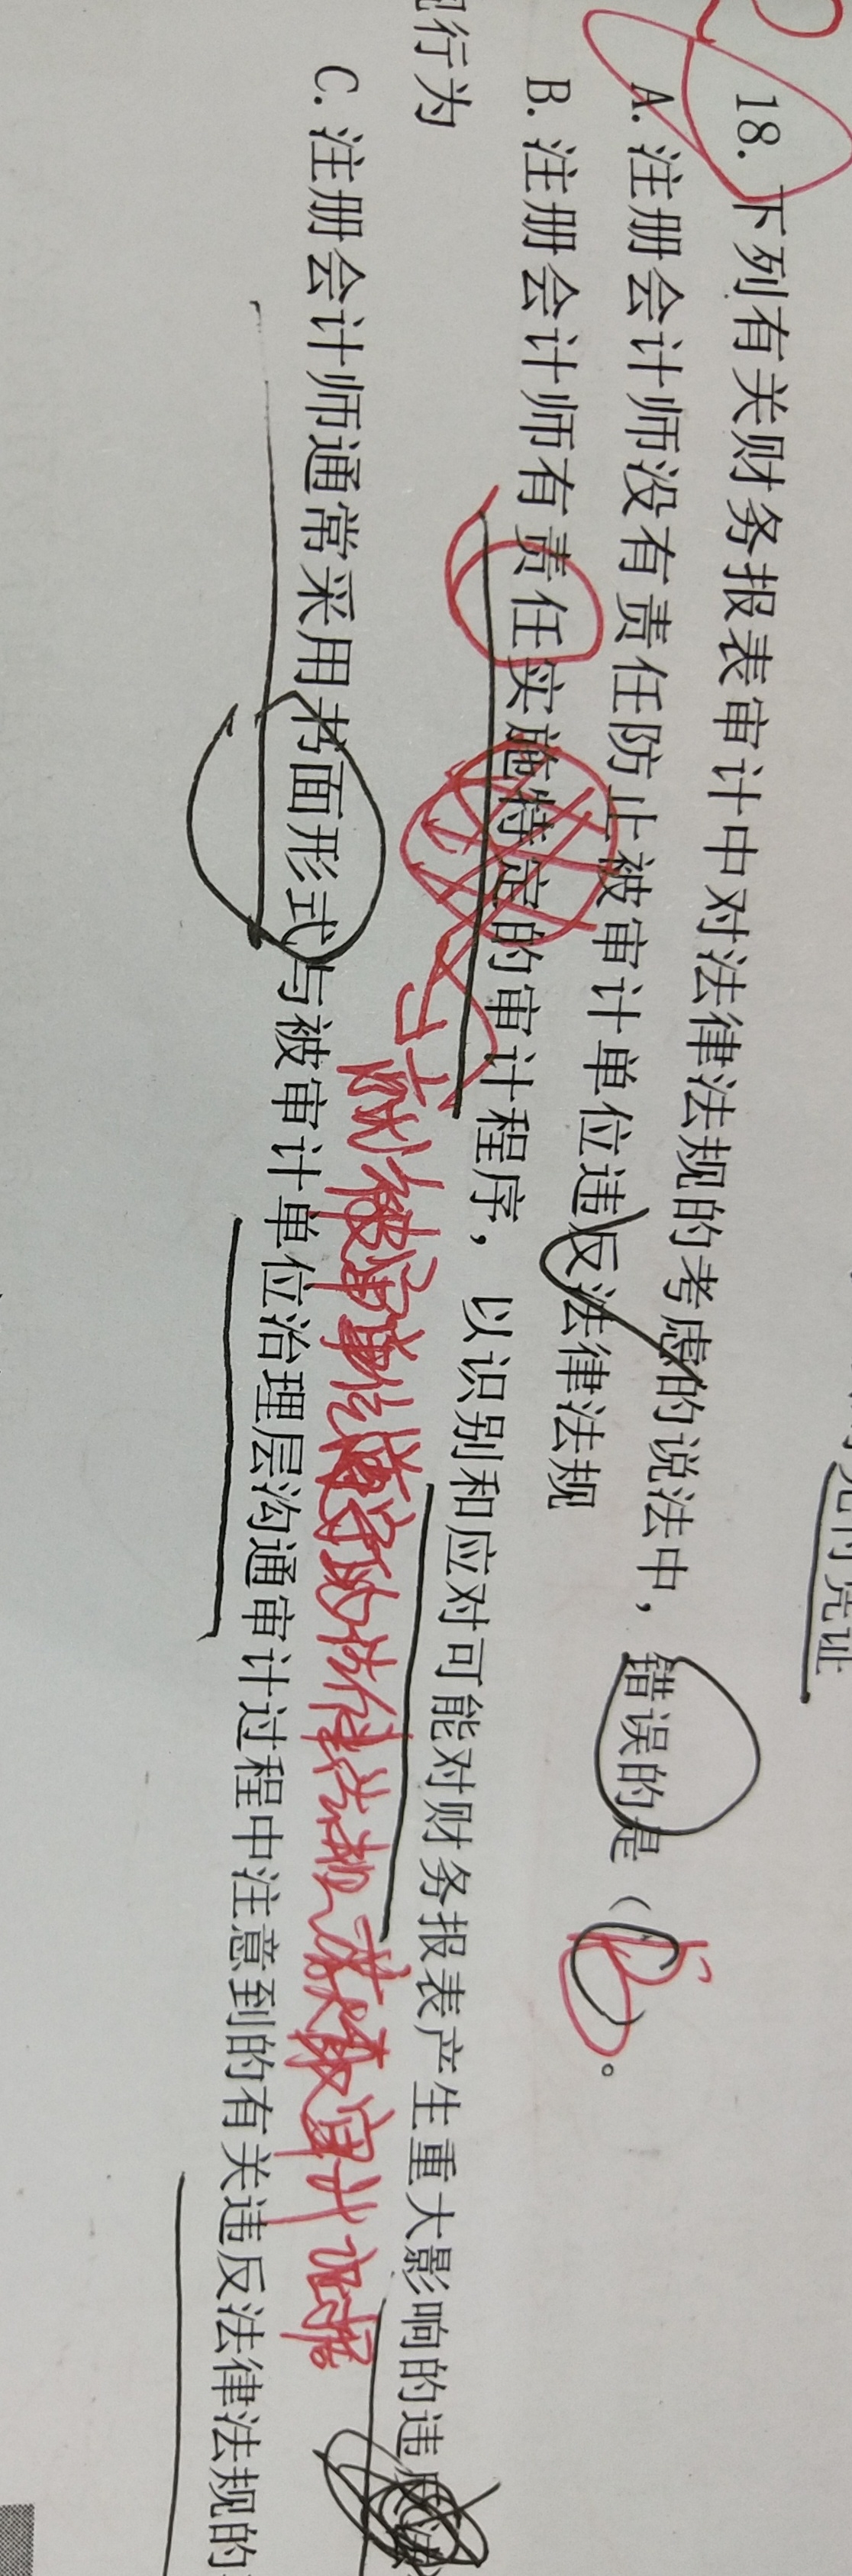 凭证
18. 下列有关财务报表审计中对法律法规的考虑的说法中，错误的是（B）。
A. 注册会计师没有责任防止被审计单位违反法律法规
B. 注册会计师有责任实施特定的审计程序，以识别和应对可能对财务报表产生重大影响的违反法
规行为
对应 被审单位遵守的法律法规 获取审计证据
C. 注册会计师通常采用书面形式与被审计单位治理层沟通审计过程中注意到的有关违反法律法规的